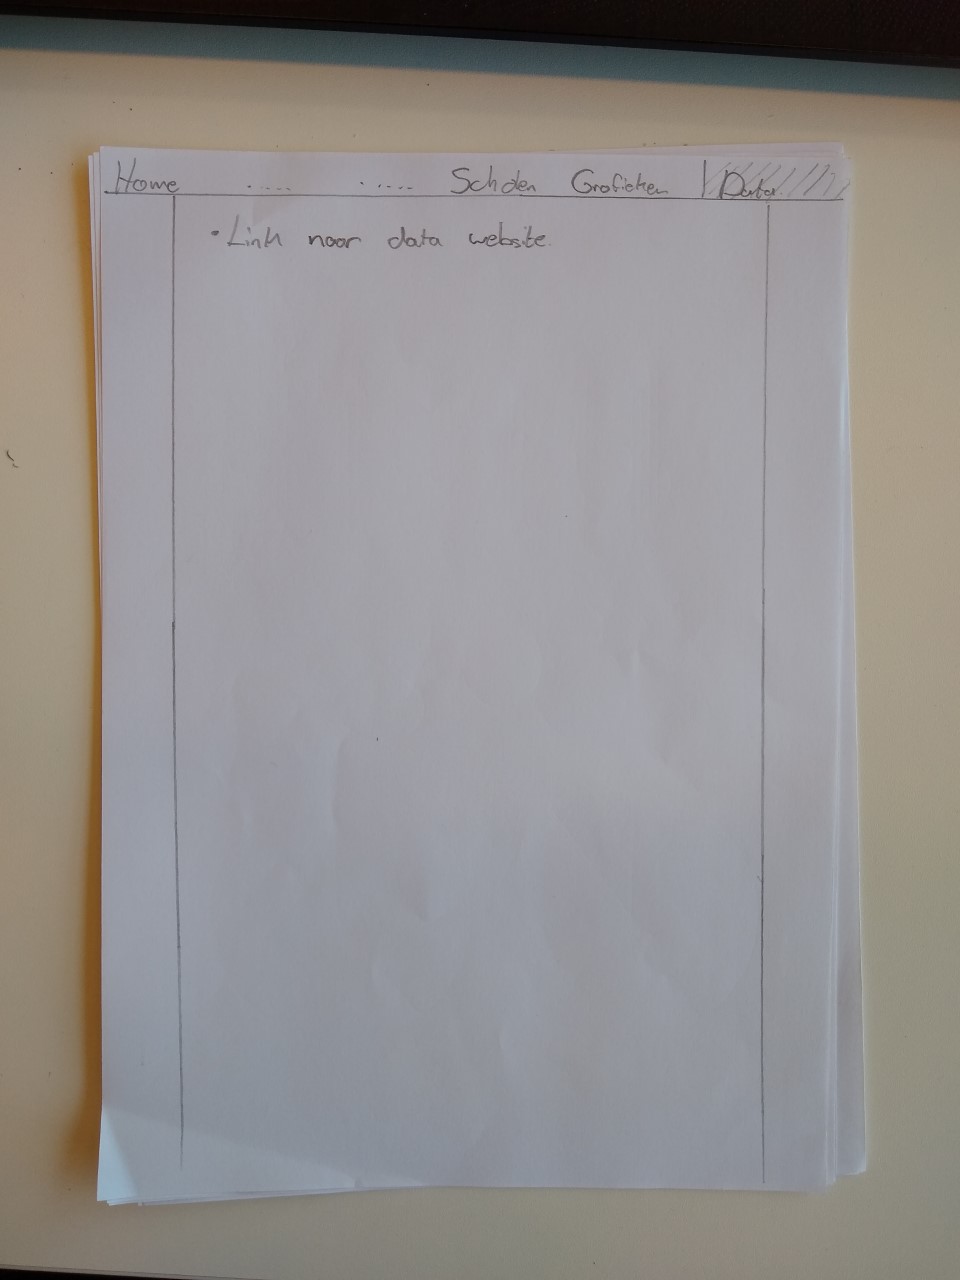 Home ..... ..... Scholen Grafieken Data
• Link naar data website